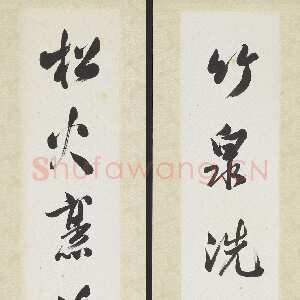 竹泉洗
松火烹
Shufawang.CN